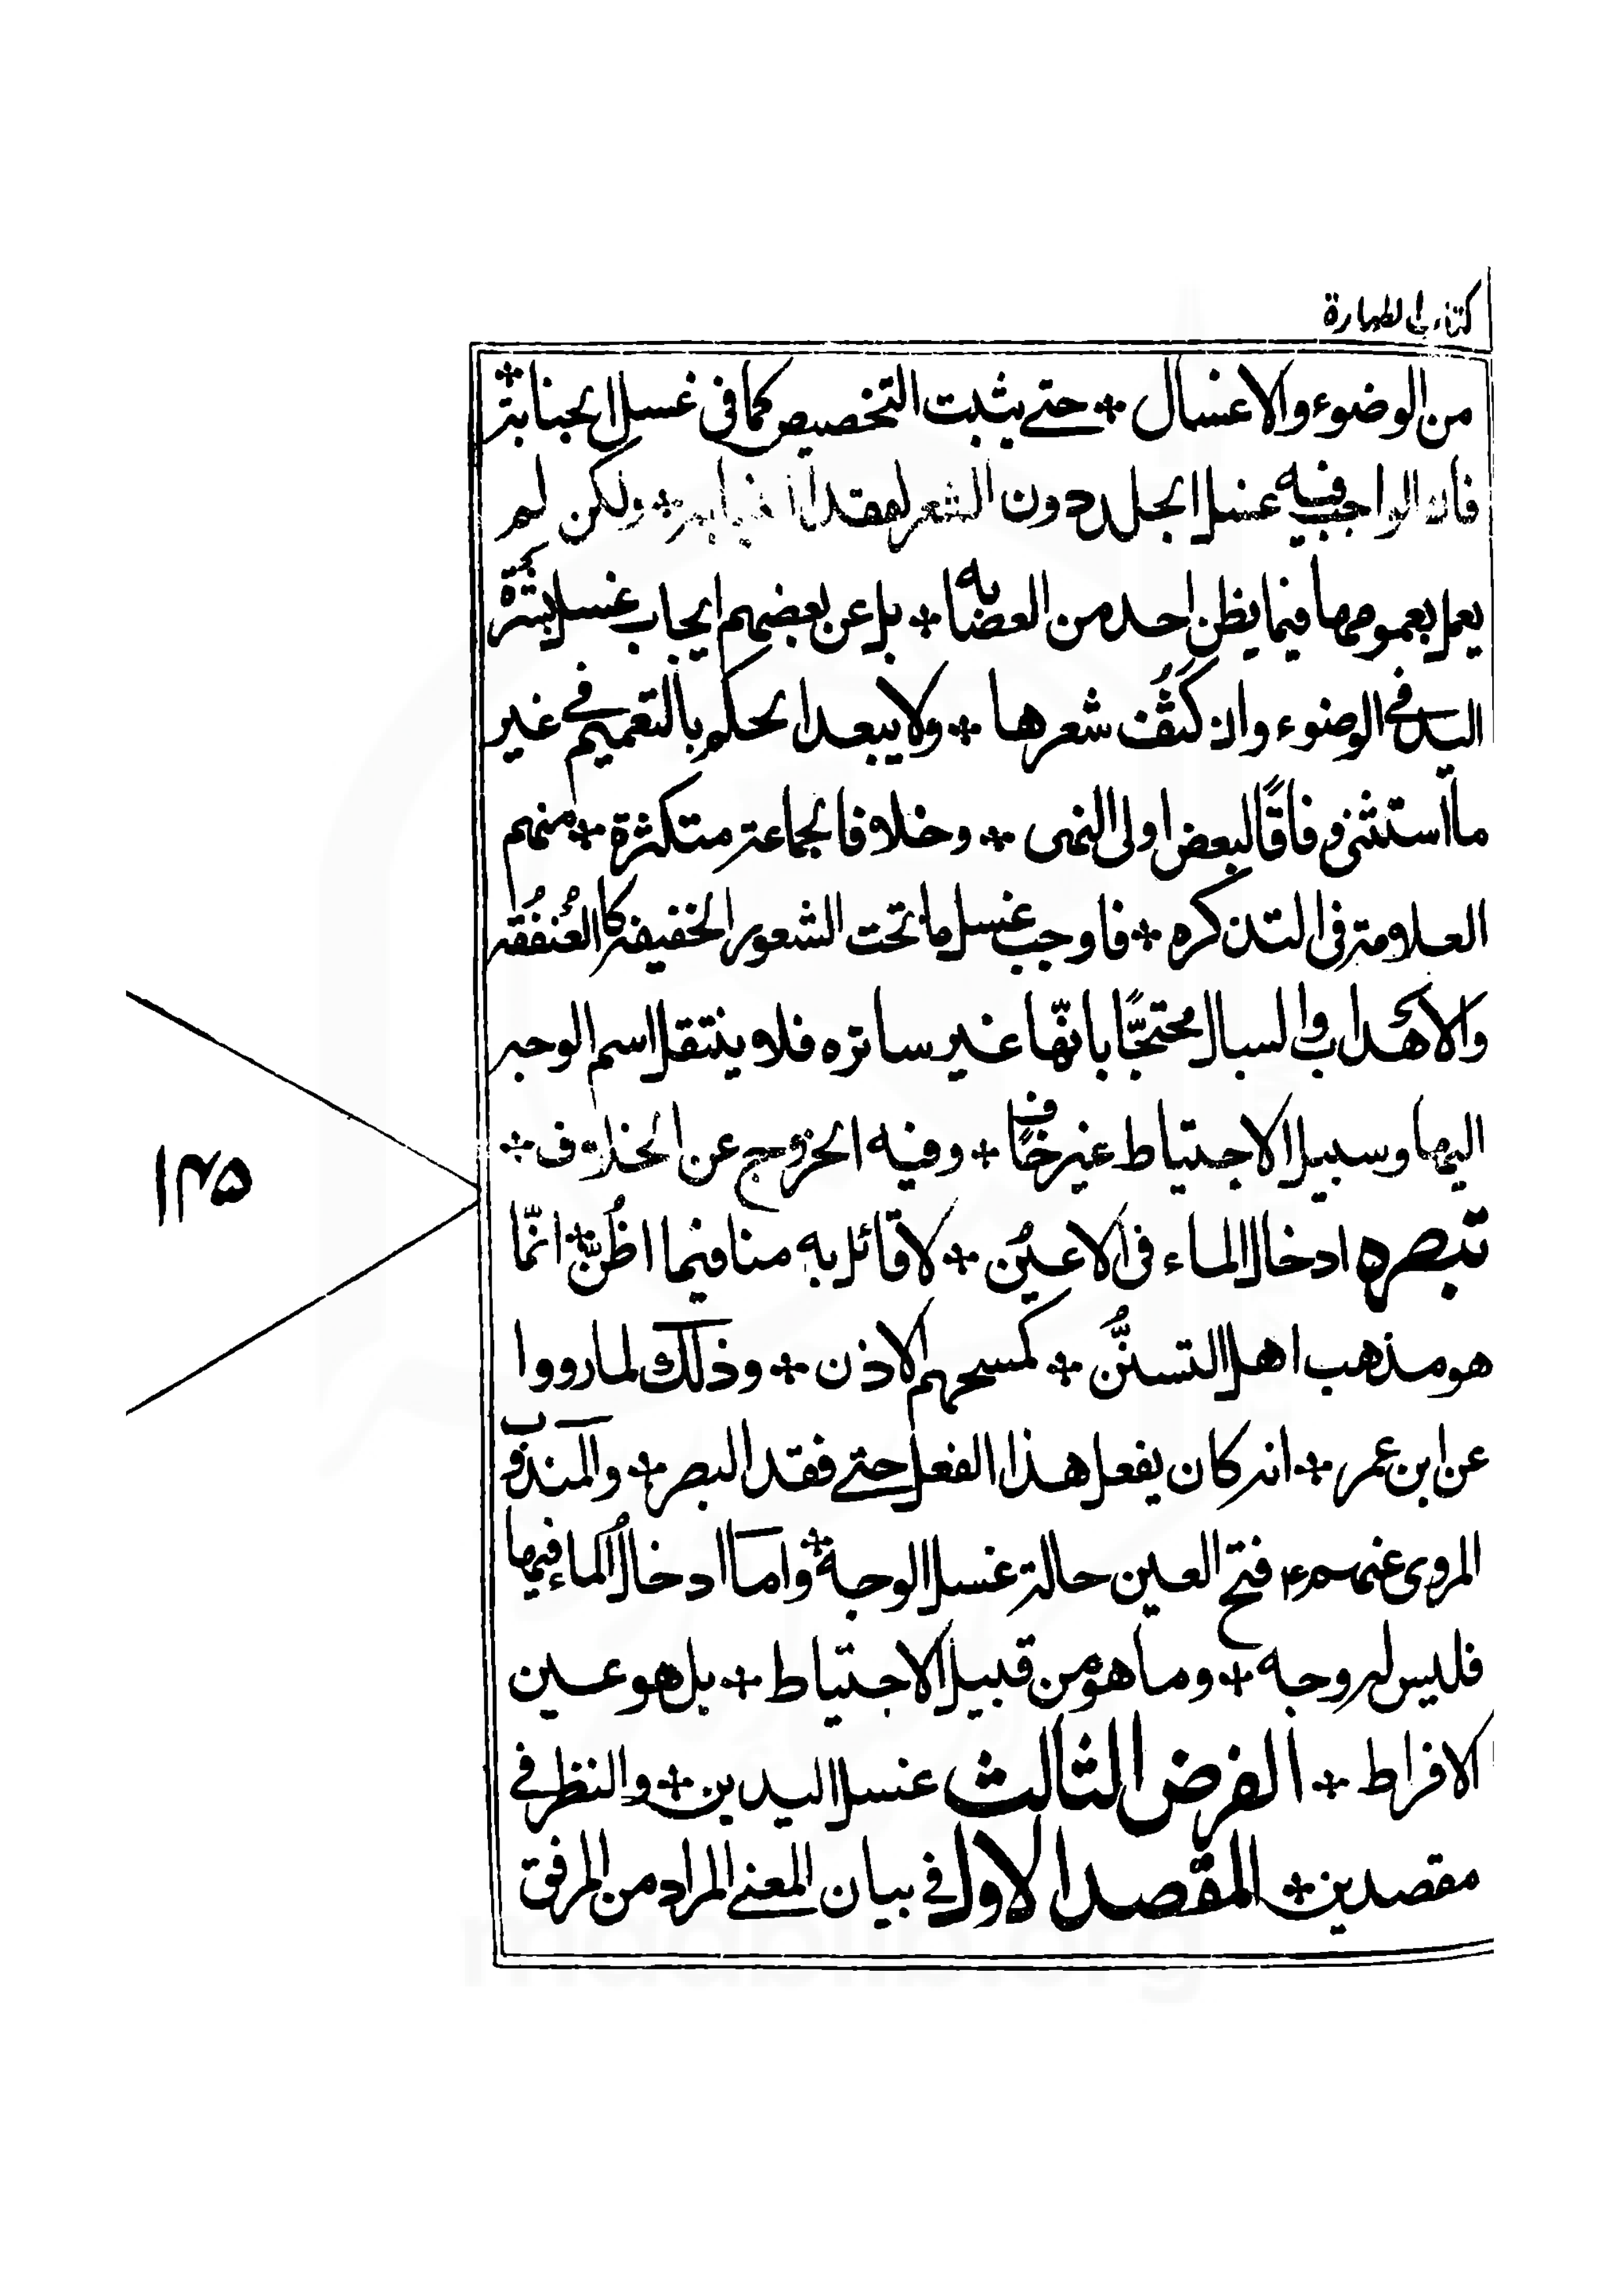 كتاب الطهارة
من الوضوء والاغسال ÷ حتى يثبت التخصيص كما في غسل الجنابة ÷
فان الواجب فيه غسل الجلد دون الشعر لفقد ÷ ولكن لم
يعمل بعمومها فيما يظن احد من العصابه ÷ بل عن بعضهم ايجاب غسل بشرة
اليد في الوضوء وان كثُف شعرها ÷ ولا يبعد الحكم بالتعميم في غير
ما استثنى وفاقًا لبعض اولى النهى ÷ وخلافا لجماعة متكثرة ÷ منهم
العلامة في التذكره ÷ فاوجب غسل ما تحت الشعور الخفيفة كالعُنفُقه
والاهداب والسبال محتجًّا بانّها غير ساتره فلا ينتقل اسم الوجه
اليها وسبيل الاحتياط غير خافٍ ÷ وفيه الخروج عن الخلاف ÷
تبصره ادخال الماء في الاعين ÷ لا قائل به منا فيما اظُنّ ÷ انّما
هو مذهب اهل التسنُّن ÷ كمسحهم الاذن ÷ وذلك لما رووا
عن ابن عمر ÷ انه كان يفعل هذا الفعل حتى فقد البصر ÷ والمندوب
المروى عنهم ع فتح العين حالة غسل الوجه ÷ واما ادخالُ الماء فيها
فليس له وجه ÷ وما هو من قبيل الاحتياط ÷ بل هو عين
الافراط ÷ الفرض الثالث غسل اليدين ÷ والنظر في
مقصدين ÷ المقصد الاول في بيان المعنى المراد من المرفق
۱۴۵